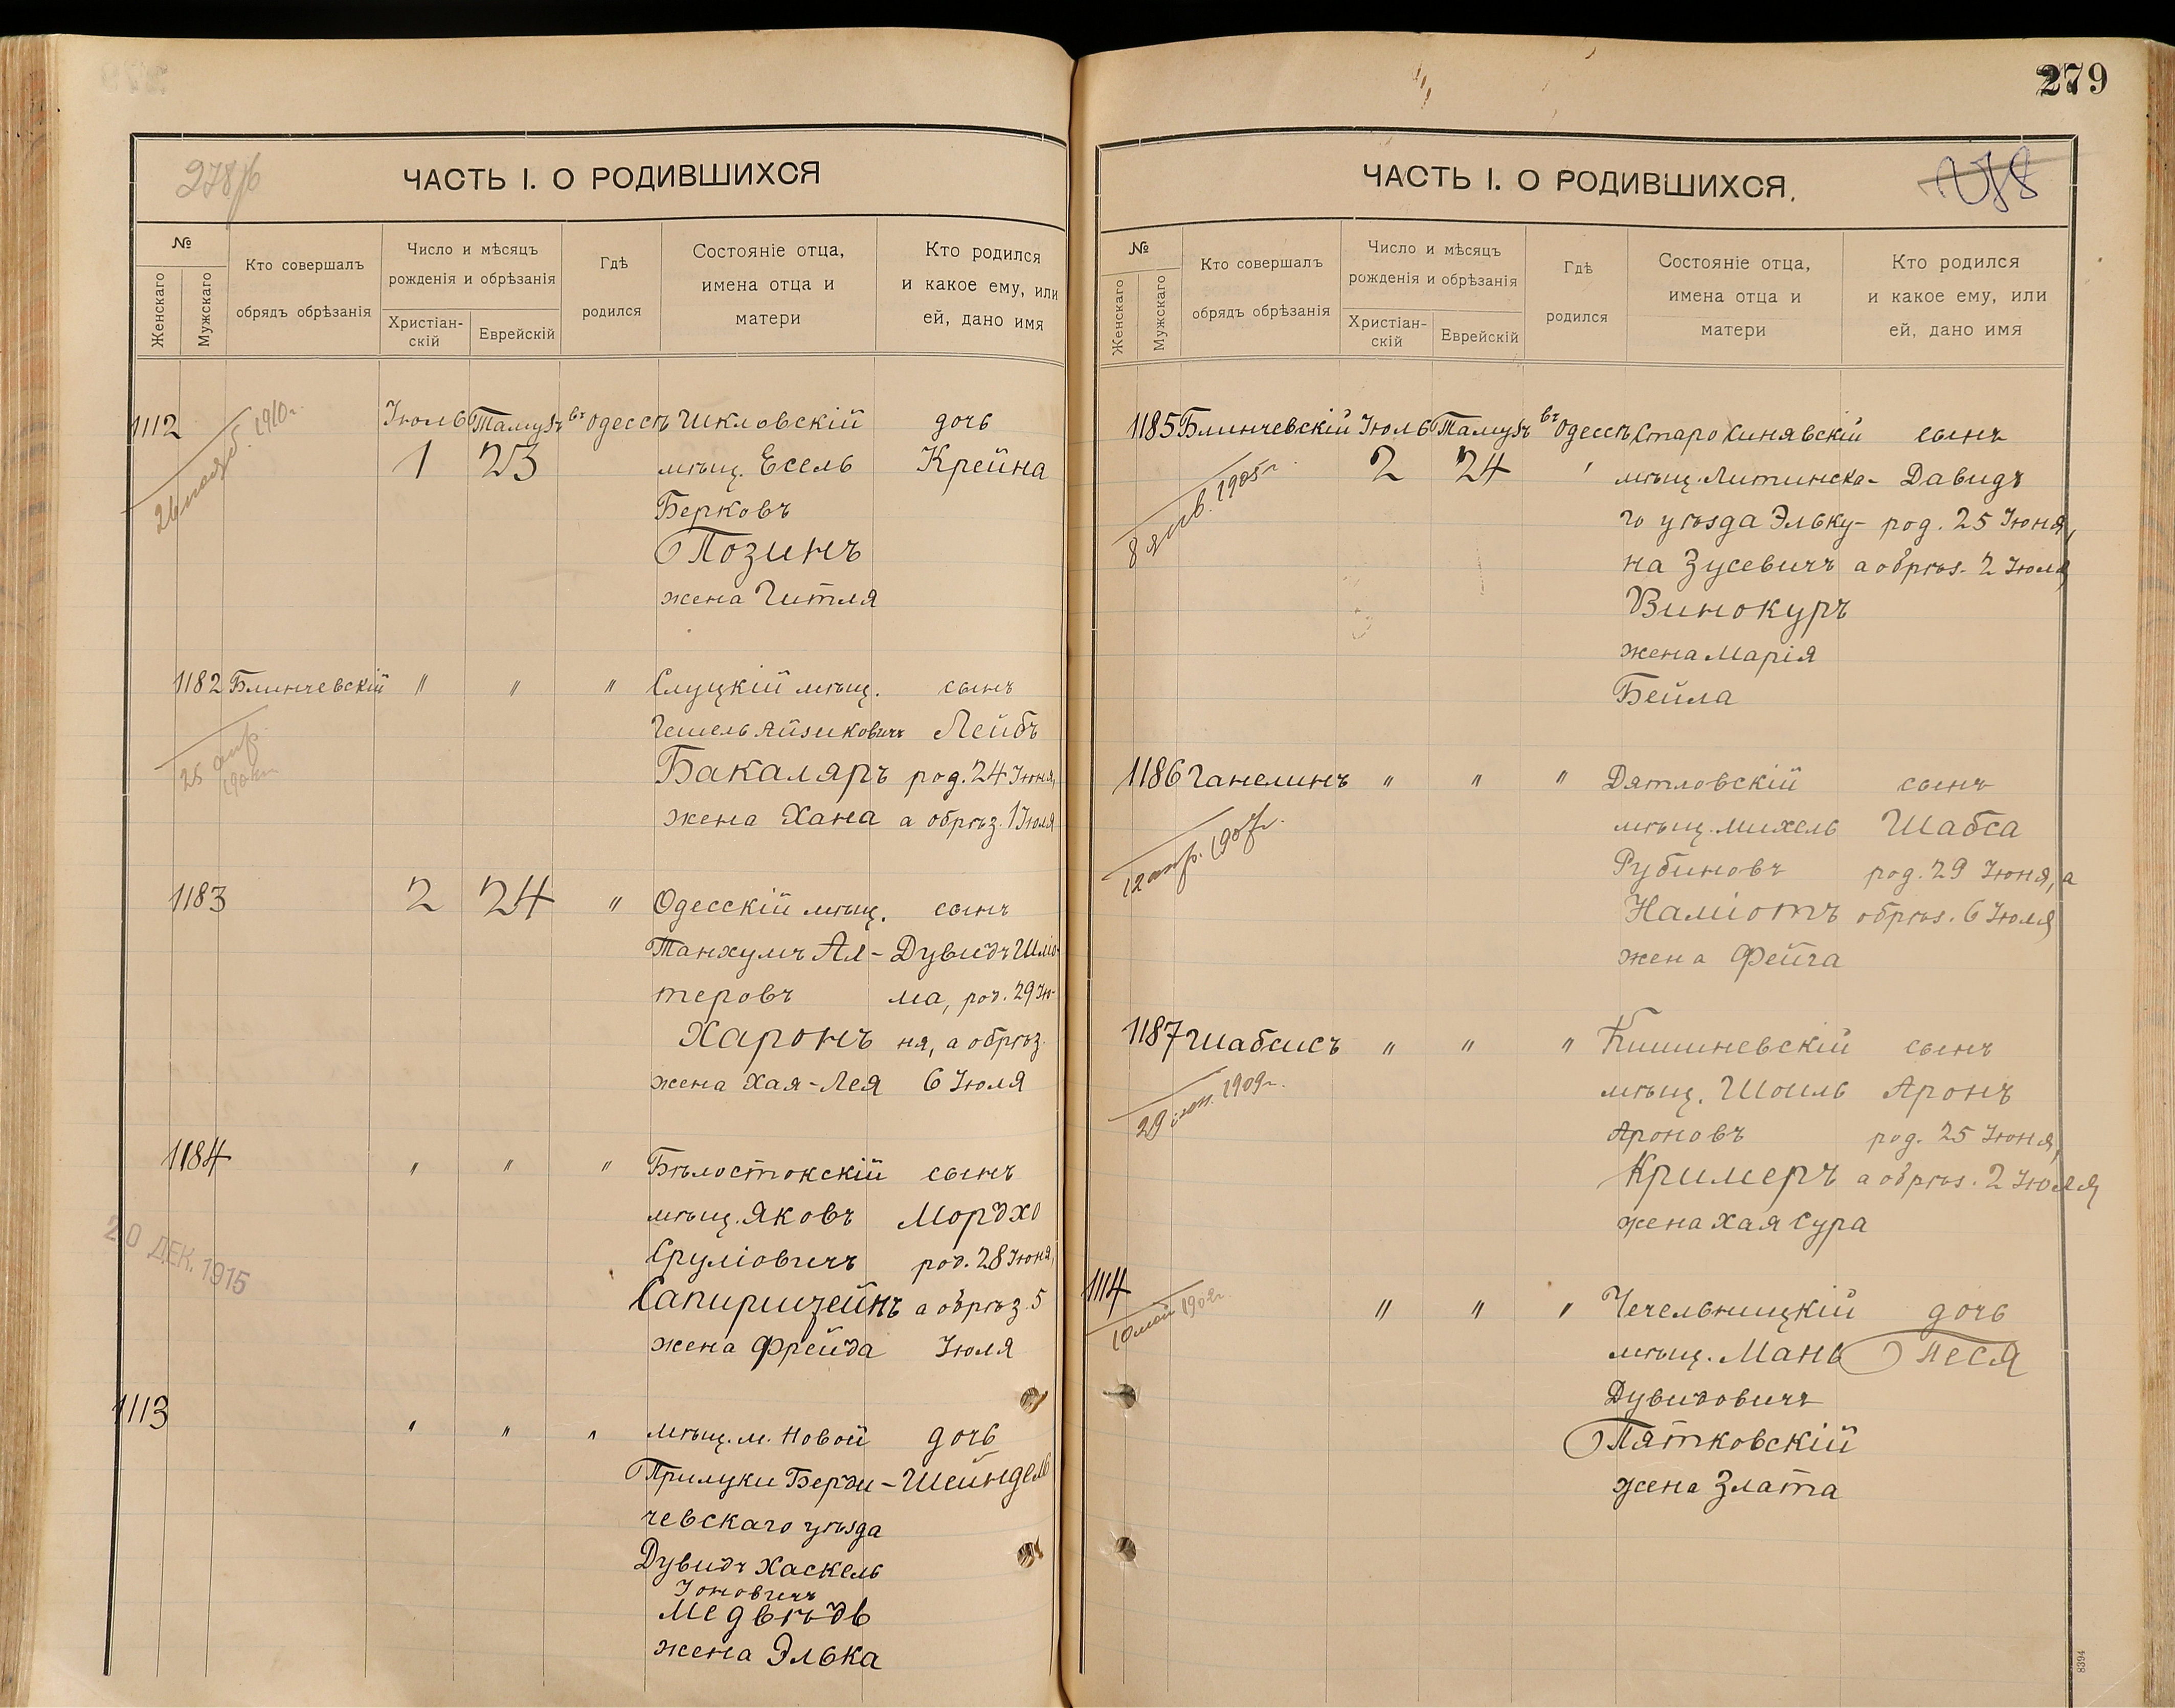 279
278
ЧАСТЬ I. О РОДИВШИХСЯ
№
Женскаго
Мужскаго
Кто совершалъ
обрядъ обрѣзанія
Число и мѣсяцъ
рожденія и обрѣзанія
Христіан-
скій
Еврейскій
Гдѣ
родился
Состояніе отца,
имена отца и
матери
Кто родился
и какое ему, или
ей, дано имя
1112 Іюль Тамузъ въ Одессѣ Шкловскій дочь
1 23 мѣщ. Есель Крейна
Берковъ
Позинъ
жена Гитля
1910г.
1182 Блинчевскій " " " Слуцкій мѣщ. сынъ
Гешель Айзиковичъ Лейбъ
Бакаляръ род. 24 Іюня,
жена Хана а обрѣз. 1 Іюля
25 апр.
1183 2 24 " Одесскій мѣщ. сынъ
Танхумъ Ал- Дувидъ Шліо-
теровъ ма, род. 29 Ію-
Харонъ ня, а обрѣз.
жена Хая-Лея 6 Іюля
1184 " " " Бѣлостокскій сынъ
мѣщ. Яковъ Мордхо
Сруліовичъ род. 28 Іюня,
Сапирштейнъ а обрѣз. 5
жена Фрейда Іюля
20 ДЕК. 1915
1113 " " " мѣщ. м. Новой дочь
Прилуки Берди- Шейндель
чевскаго уѣзда
Дувидъ Хаскель
Іоновичъ
Медвѣдь
жена Элька
ЧАСТЬ I. О РОДИВШИХСЯ.
278
№
Женскаго
Мужскаго
Кто совершалъ
обрядъ обрѣзанія
Число и мѣсяцъ
рожденія и обрѣзанія
Христіан-
скій
Еврейскій
Гдѣ
родился
Состояніе отца,
имена отца и
матери
Кто родился
и какое ему, или
ей, дано имя
1185 Блинчевскій Іюль Тамузъ въ Одессѣ Старо Синявскій сынъ
2 24 мѣщ. Литинска- Давидъ
го уѣзда Эльку- род. 25 Іюня,
на Зусевичъ а обрѣз. 2 Іюля
Винокуръ
жена Марія
Бейла
8 янв. 1905г.
1186 Ганелинъ " " " Дятловскій сынъ
мѣщ. Михель Шабса
Рубиновъ род. 29 Іюня, а
Наміотъ обрѣз. 6 Іюля
жена Фейга
12 апр. 1907г.
1187 Шабсисъ " " " Кишиневскій сынъ
мѣщ. Шоиль Аронъ
Ароновъ род. 25 Іюня,
Кримеръ а обрѣз. 2 Іюля
жена Хая Сура
1909г.
1114 " " " Чечельницкій дочь
мѣщ. Мань Песя
Дувидовичъ
Пятковскій
жена Злата
8394